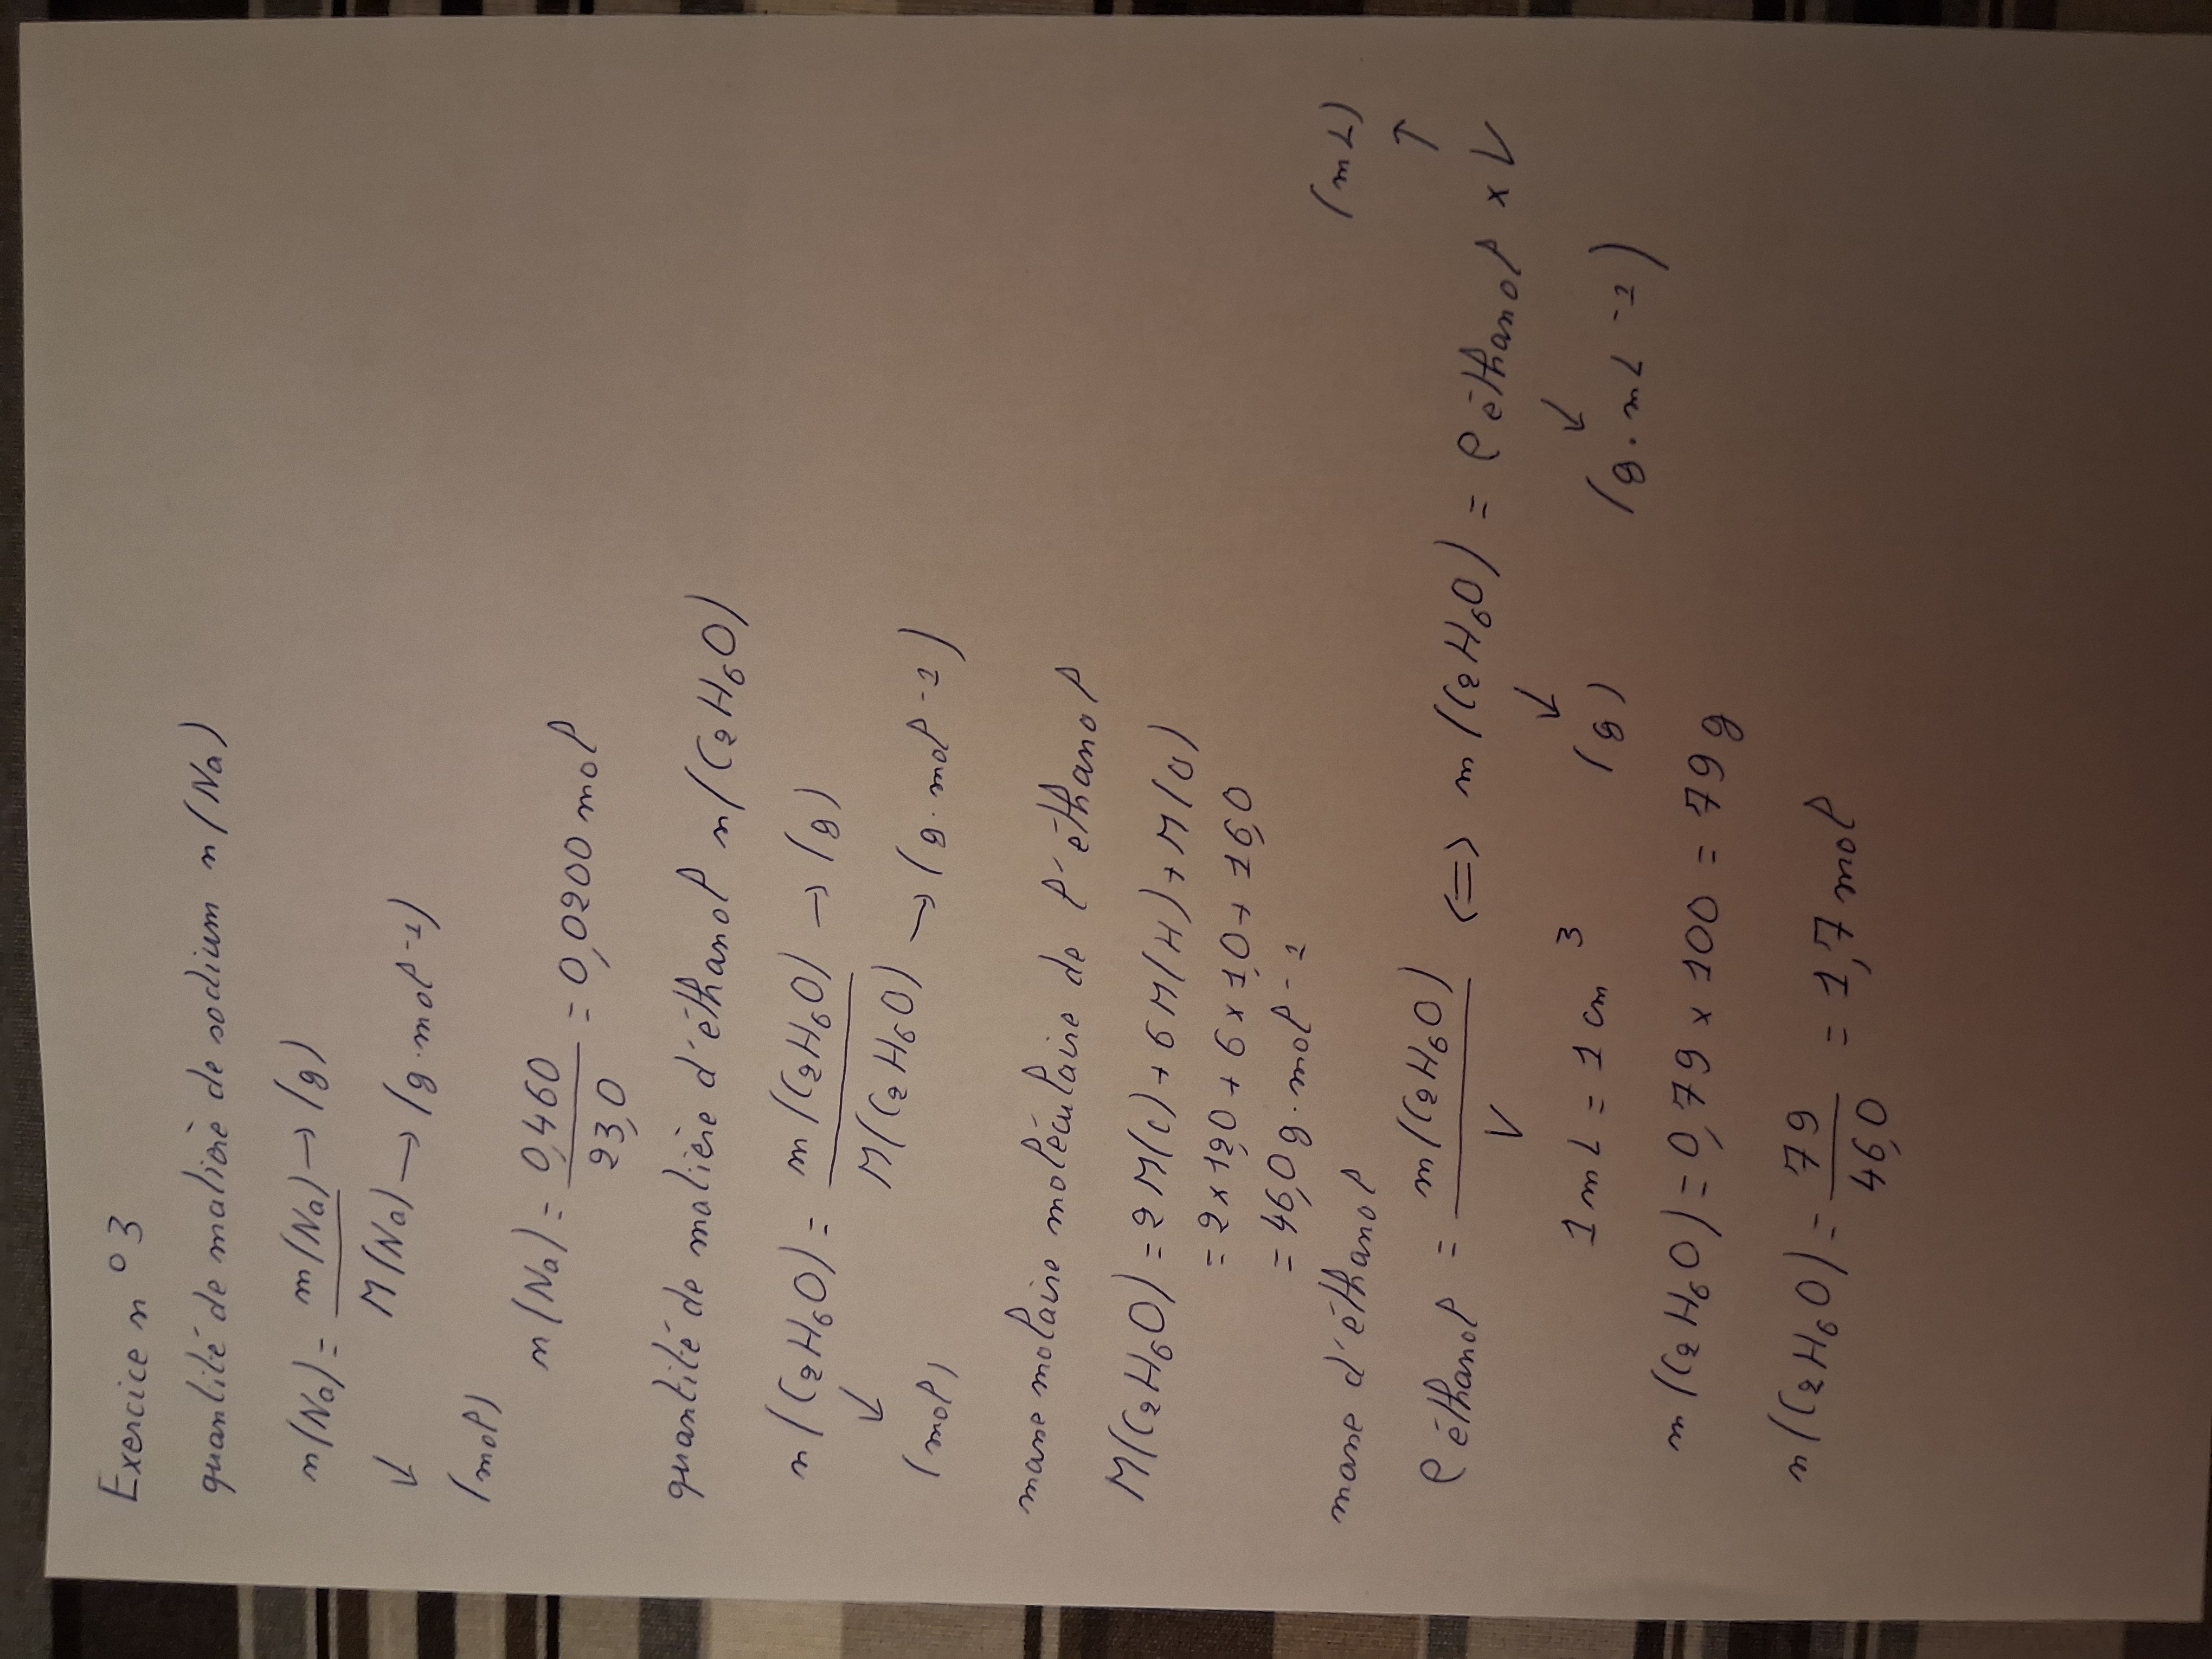 Exercice n° 3
quantité de matière de sodium n(Na)
n(Na) = m(Na) → (g)
M(Na) → (g·mol⁻¹)
↓
(mol)
n(Na) = 0,460 = 0,0200 mol
23,0
quantité de matière d'éthanol n(C₂H₆O)
n(C₂H₆O) = m(C₂H₆O) → (g)
↓ M(C₂H₆O) → (g·mol⁻¹)
(mol)
masse molaire moléculaire de l'éthanol
M(C₂H₆O) = 2M(C) + 6M(H) + M(O)
= 2×12,0 + 6×1,0 + 16,0
= 46,0 g·mol⁻¹
masse d'éthanol
(mL)
↑
ρ éthanol = m(C₂H₆O) <=> m(C₂H₆O) = ρ éthanol × V
V ↓ ↓
1 mL = 1 cm³ (g) (g·mL⁻¹)
m(C₂H₆O) = 0,79 × 100 = 79 g
n(C₂H₆O) = 79 = 1,7 mol
46,0